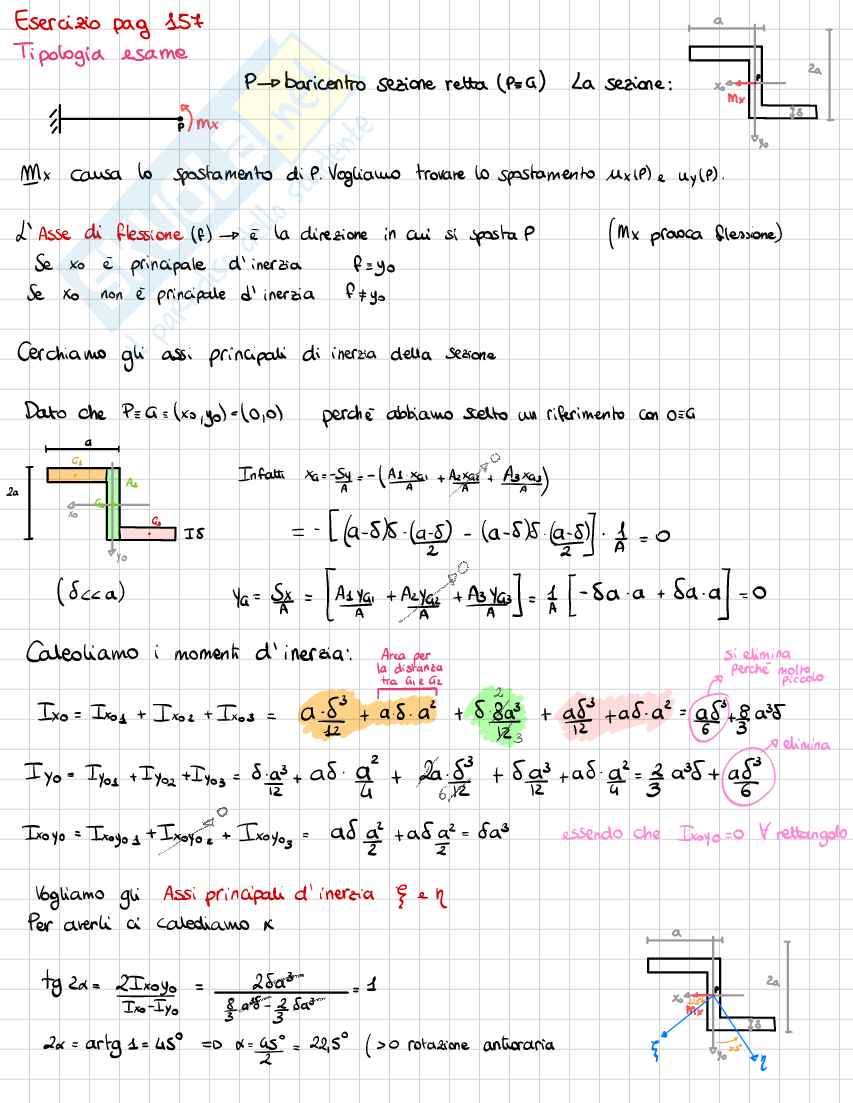 Esercizio pag 157
Tipologia esame
P → baricentro sezione retta (P≡G) La sezione:
a
2a
x₀
P
Mx
Iδ
y₀
P
Mx
Mx causa lo spostamento di P. Vogliamo trovare lo spostamento ux(P) e uy(P).
L'Asse di flessione (f) → è la direzione in cui si sposta P (Mx provoca flessione)
Se x₀ è principale d'inerzia f≡y₀
Se x₀ non è principale d'inerzia f≠y₀
Cerchiamo gli assi principali di inerzia della sezione
Dato che P≡G=(x₀,y₀)=(0,0) perché abbiamo scelto un riferimento con O≡G
a
G₁
2a
A₂
G₂
x₀
G₃
Iδ
y₀
(δ<<a)
Infatti x_G = -Sy/A = -(A₁x_G₁/A + A₂x_G₂/A + A₃x_G₃/A) 0
= -[(a-δ)δ·(a-δ)/2 - (a-δ)δ·(a-δ)/2]·1/A = 0
y_G = Sx/A = [A₁y_G₁/A + A₂y_G₂/A + A₃y_G₃/A] = 1/A [-δa·a + δa·a] = 0 0
Calcoliamo i momenti d'inerzia:
Area per
la distanza
tra G₁ e G₂
si elimina
perché molto
piccolo
Ix₀ = Ix₀₁ + Ix₀₂ + Ix₀₃ = a·δ³/12 + aδ·a² + δ·8a³/12 2 3 + aδ³/12 + aδ·a² = aδ³/6 + 8/3 a³δ
elimina
Iy₀ = Iy₀₁ + Iy₀₂ + Iy₀₃ = δ·a³/12 + aδ·a²/4 + 2a·δ³/12 6 + δa³/12 + aδ·a²/4 = 2/3 a³δ + aδ³/6
Ix₀y₀ = Ix₀y₀₁ + Ix₀y₀₂ + Ix₀y₀₃ = aδ a²/2 + aδ a²/2 = δa³ 0 essendo che Ix₀y₀=0 ∀ rettangolo
Vogliamo gli Assi principali d'inerzia ξ e η
Per averli ci calcoliamo α
tg 2α = 2Ix₀y₀/(Ix₀-Iy₀) = 2δa³/(8/3 a³δ - 2/3 δa³) = 1
2α = artg 1 = 45° => α = 45°/2 = 22,5° (>0 rotazione antioraria
a
2a
x₀
P
Mx
Iδ
ξ
y₀
η